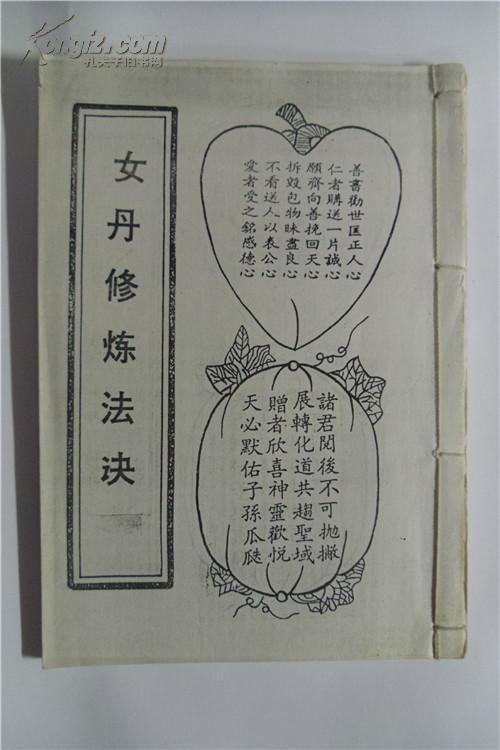 Kongfz.com
孔夫子旧书网
女丹修炼法决
善書勸世匡正人心
仁者購送一片誠心
願齊向善挽回天心
拆毀包物昧盡良心
不看送人以表公心
愛者受之銘感德心
諸君閱後不可拋撇
展轉化道共趨聖域
贈者欣喜神靈歡悅
天必默佑子孫瓜瓞